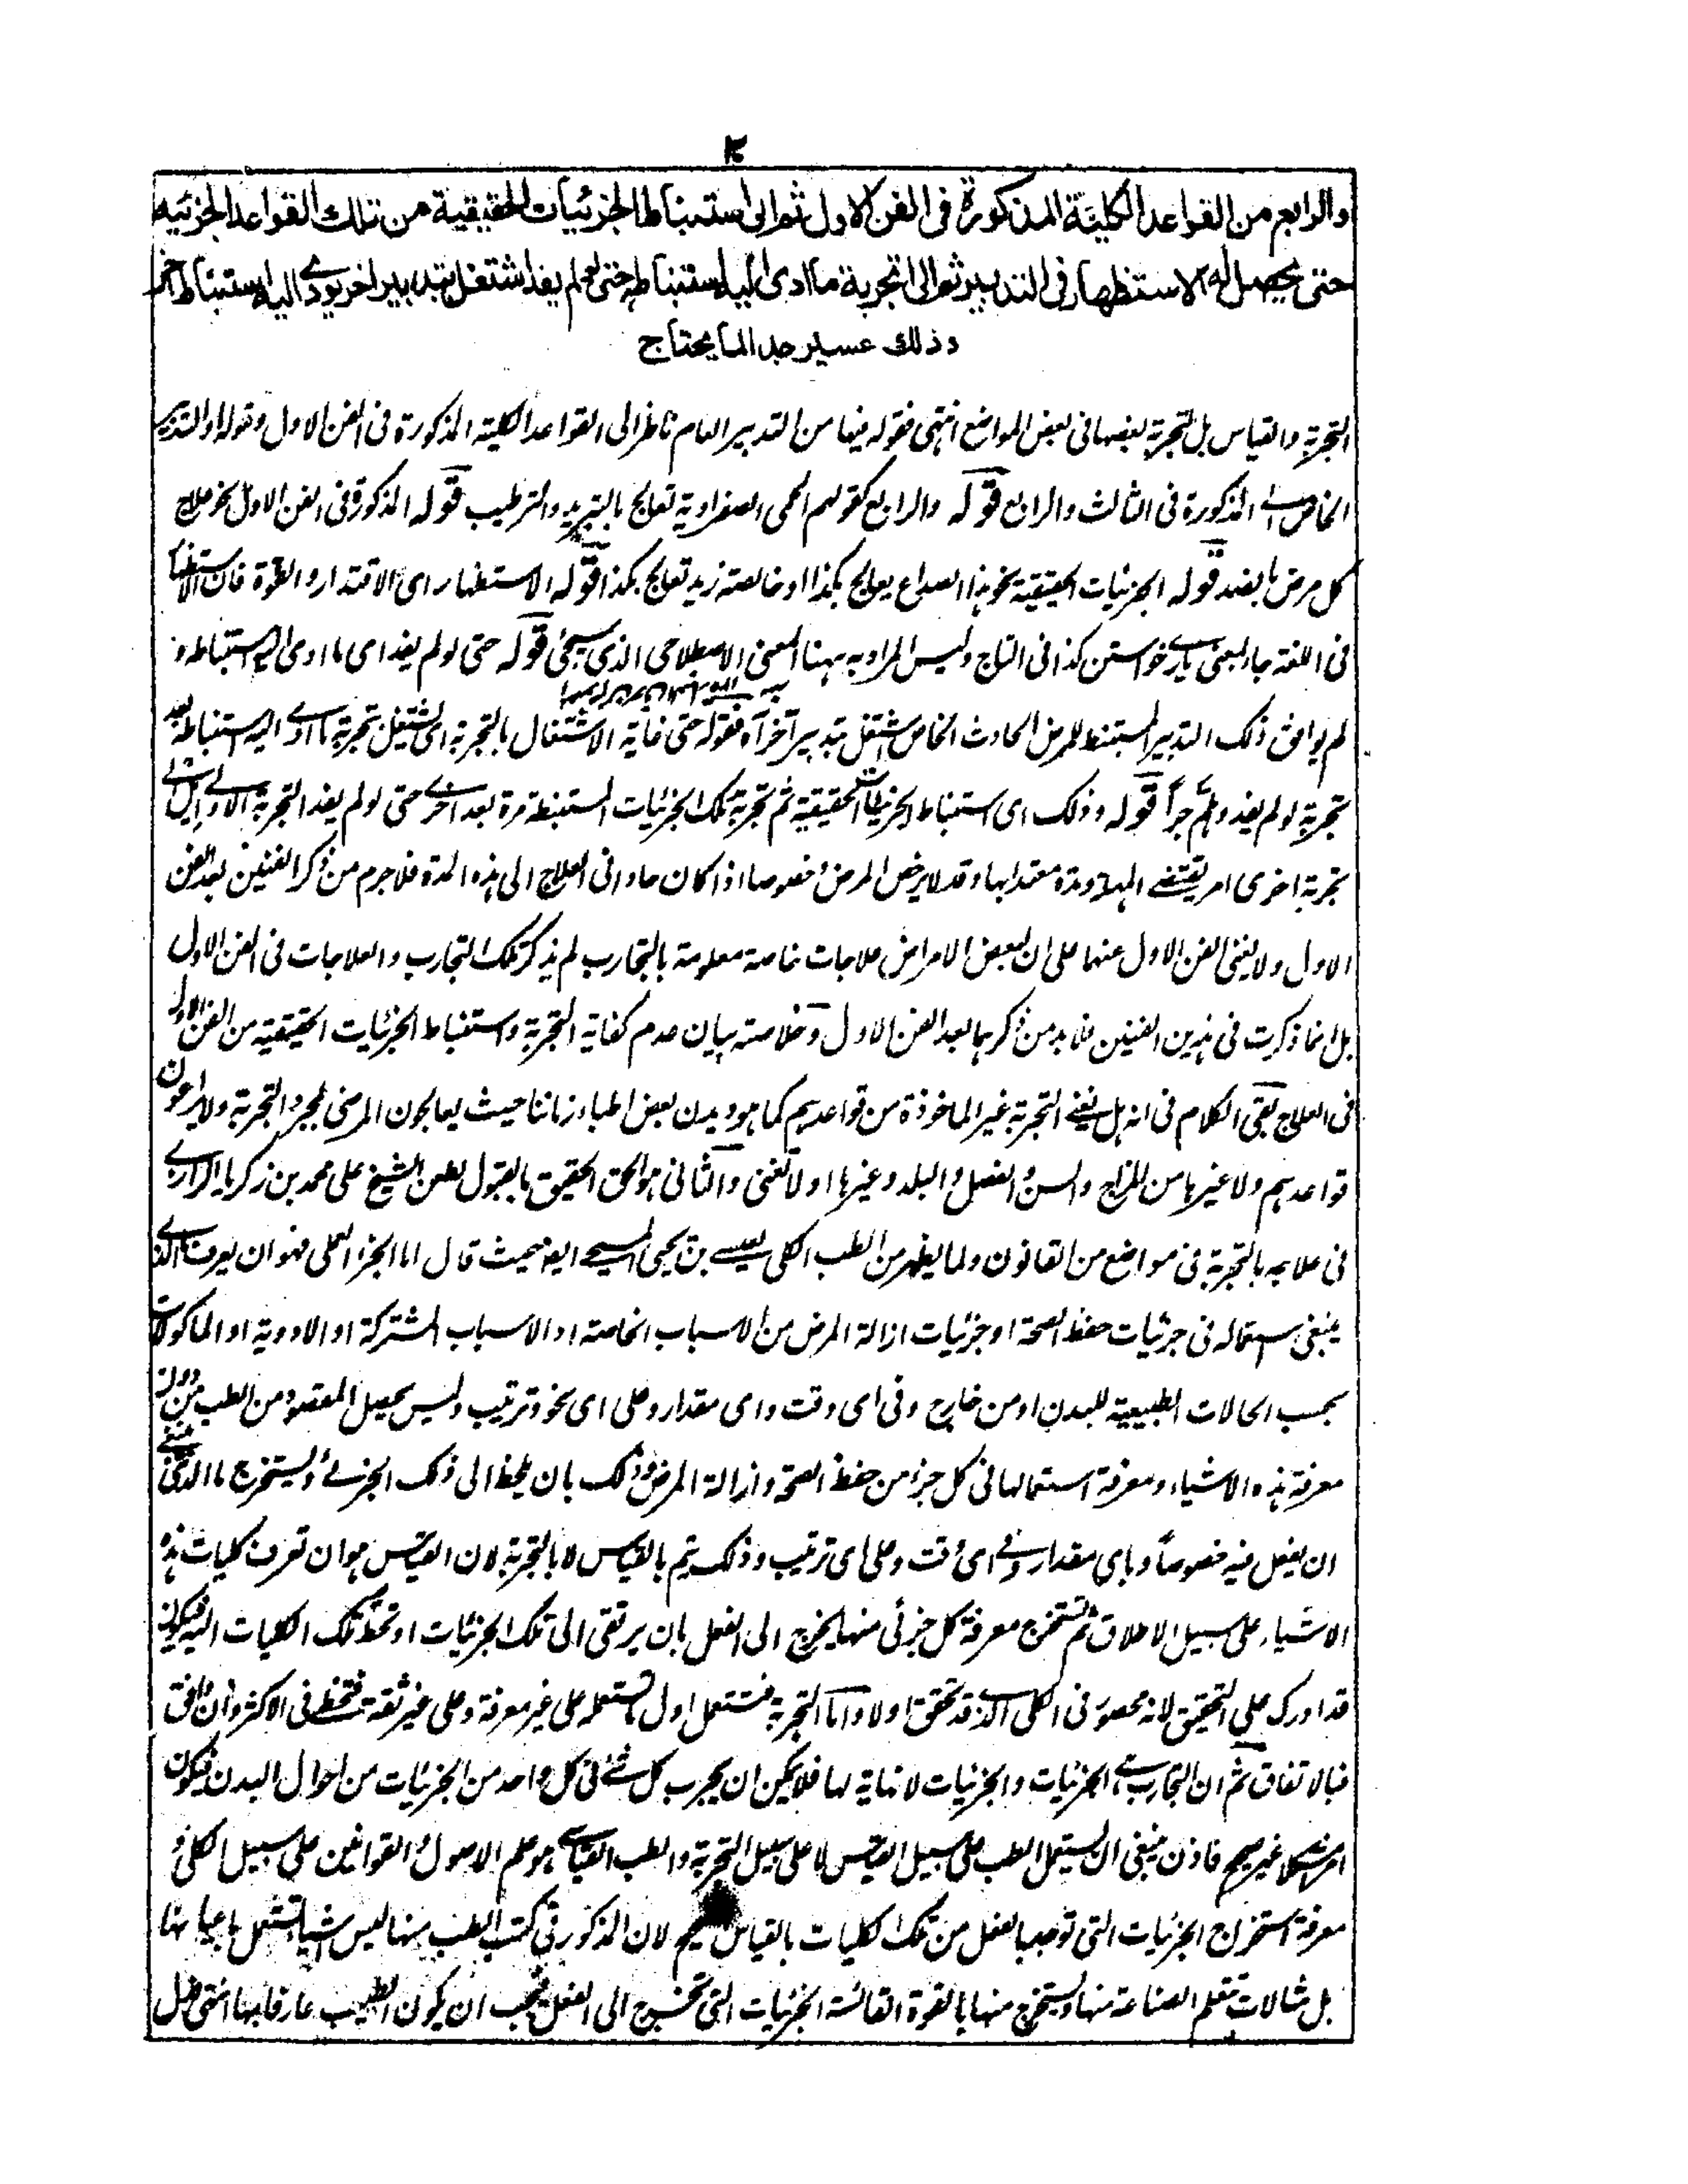 والرابع من القواعد الكلية المذكورة فى الفن الاول ثم الى استنباط الجزئيات الحقيقية من تلك القواعد الجزئية
حتى يحصل له الاستظهار فى التدبير ثم الى تجربة ما ادى اليه استنباطه حتى لو لم يفد اشتغل بتدبير اخر يودى اليه استنباط اخر
وذلك عسير جدا لما يحتاج
التجربة والقياس بل التجربة بعضها فى بعض المواضع انتهى فقوله فيها من التدبير العام ناظر الى القواعد الكلية المذكورة فى الفن الاول وقوله او التدبير
الخاص الى المذكورة فى الثالث والرابع قوله والرابع كقولهم الحمى الصفراوية تعالج بالتبريد والترطيب قوله المذكورة فى الفن الاول نحو علاج
كل مرض بالضد قوله الجزئيات الحقيقية نحو هذا الصداع يعالج بكذا او خالصة زيد تعالج بكذا قوله الاستظهار اى الاقتدار والقوة فان الاستظهار
فى اللغة جاء بمعنى يارى خواستن كذا فى التاج وليس المراد به ههنا المعنى الاصطلاحى الذى سيجئ قوله حتى لو لم يفد اى ما ادى اليه استنباطه و
لم يوافق ذلك التدبير المستنبط للمرض الحادث الخاص اشتغل بتدبير آخر آه فقوله حتى غاية الاشتغال بالتجربة اى يشتغل تجربة ما ادى اليه استنباطه بعد
تجربة لو لم يفد وهلم جرا قوله وذلك اى استنباط الجزئيات الحقيقية ثم تجربة تلك الجزئيات المستنبطة مرة بعد اخرى حتى لو لم يفد التجربة الاولى
تجربة اخرى امر يقتضى المهلة ومدة معتدا بها وقد لا يرخص المرض خصوصا اذا كان حادا فى العلاج الى هذه المدة فلا جرم من ذكر الفنين بعد الفن
الاول ولا يغنى الفن الاول عنهما على ان لبعض الامراض علاجات خاصة معلومة بالتجارب لم يذكر تلك التجارب والعلاجات فى الفن الاول
بل انما ذكرت فى هذين الفنين فلا بد من ذكرهما بعد الفن الاول وخلاصته بيان عدم كفاية التجربة واستنباط الجزئيات الحقيقية من الفن الاول
فى العلاج بقى الكلام فى انه هل يغنى التجربة غير الماخوذة من قواعدهم كما هو ديدن بعض اطباء زماننا حيث يعالجون المرضى لمجرد التجربة ولا يراعون
قواعدهم ولا غيرها من المزاج والسن والفصل والبلد وغيرها او لا تغنى والثانى هو الحق الحقيق بالقبول لطعن الشيخ على محمد بن زكريا الرازى
فى علاجه بالتجربة فى مواضع من القانون ولما يظهر من الطب الكلى لعيسى بن يحيى المسيحى ايضا حيث قال اما الجزء العملى فهو ان يعرف الذى
ينبغى استعماله فى جزئيات حفظ الصحة او جزئيات ازالة المرض من الاسباب الخاصة او الاسباب المشتركة او الادوية او الماكولات
بحسب الحالات الطبيعية للبدن او من خارج وفى اى وقت واى مقدار وعلى اى نحو وترتيب وليس يحصل المقصود من الطب من دون
معرفة هذه الاشياء ومعرفة استعمالها فى كل جزء من حفظ الصحة وازالة المرض وذلك بان يلحظ الى ذلك الجزئى ويستخرج ما الذى ينبغى
ان يفعل فيه خصوصا وباى مقدار وفى اى وقت وعلى اى ترتيب وذلك يتم بالقياس لا بالتجربة لان القياس هو ان تعرف كليات هذه
الاشياء على سبيل الاطلاق ثم تستخرج معرفة كل جزئى منها يخرج الى الفعل بان يرتقى الى تلك الجزئيات او تحط تلك الكليات اليه فيكون
قد ادرك على التحقيق لانه محصور فى الكلى الذى قد تحقق اولا واما التجربة فتستعمل اول ما تستعمله على غير معرفة وعلى غير ثقة فتخطى فى الاكثر وان وافق
فبالاتفاق ثم ان التجارب فى الجزئيات والجزئيات لا نهاية لها فلا يمكن ان يجرب كل شئ فى كل واحد من الجزئيات من احوال البدن فيكون
امرا مشكلا غير صحيح فاذن ينبغى ان يستعمل الطب على سبيل القياس لا على سبيل التجربة والطب القياسى هو علم الاصول والقوانين على سبيل الكلى و
معرفة استخراج الجزئيات التى توجد بالفعل من تلك الكليات بالقياس لان المذكور فى كتب الطب منها ليس اشياء تستعمل باعيانها
بل مثالات تتعلم الصناعة منها ويستخرج منها بالقوة القائسة الجزئيات التى تخرج الى الفعل يجب ان يكون الطبيب عارفا بها انتهى